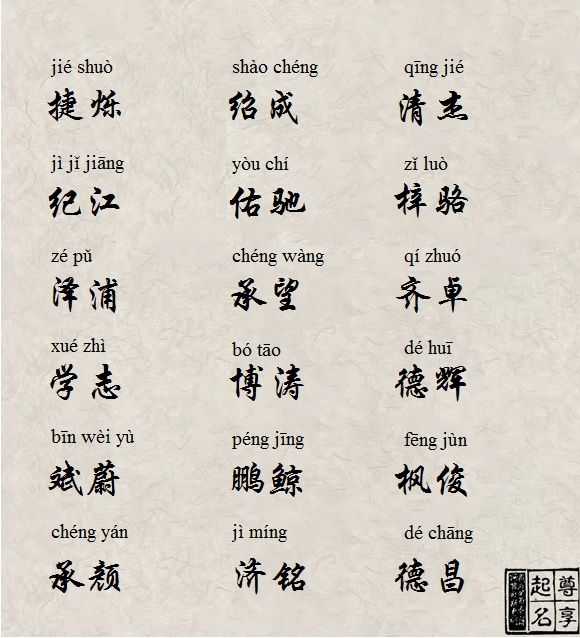 jié shuò shào chéng qīng jié
捷烁 绍成 清杰
jì jǐ jiāng yòu chí zǐ luò
纪江 佑驰 梓骆
zé pǔ chéng wàng qí zhuó
泽浦 承望 齐卓
xué zhì bó tāo dé huī
学志 博涛 德辉
bīn wèi yù péng jīng fēng jùn
斌蔚 鹏鲸 枫俊
chéng yán jì míng dé chāng
承颜 济铭 德昌
尊享
起名